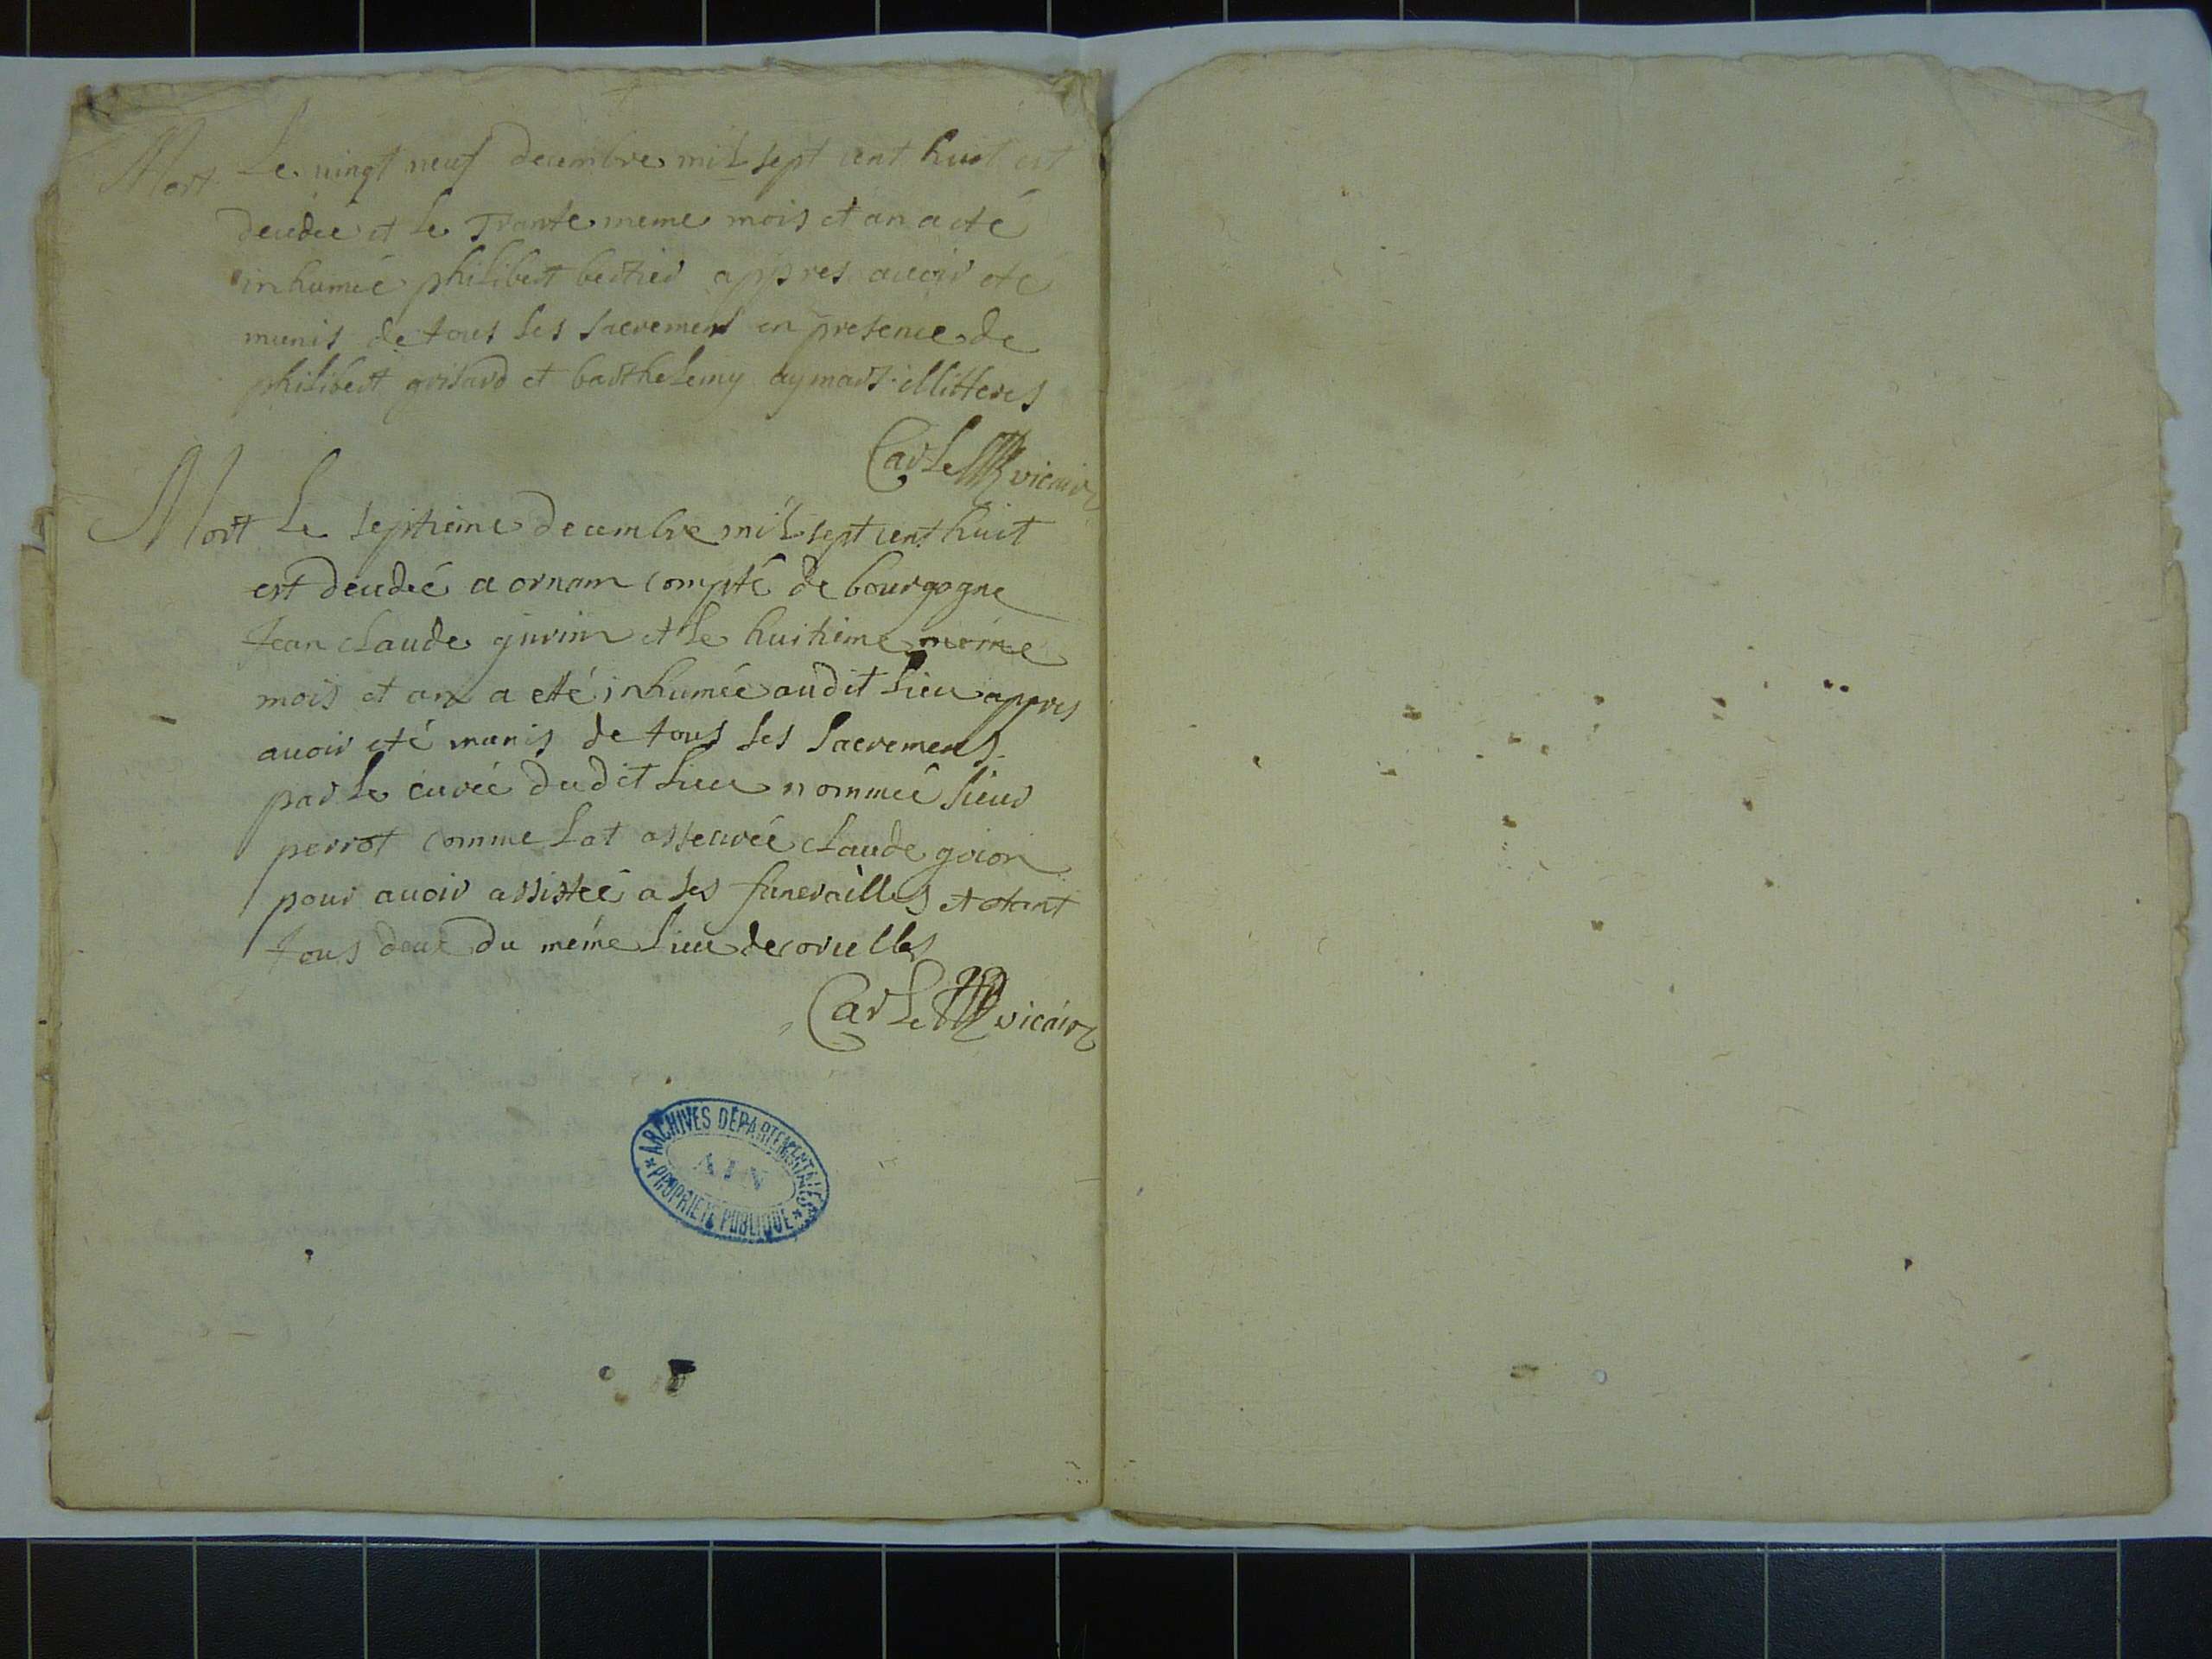 Mort Le vingt neuf decembre mil sept cent huit est
decedeé et le Trante meme mois et an a eté
inhumeé philibert bertier appres avoir eté
munis de tous les sacrement en presence de
philibert grisard et barthelemy aymard illitteres
Carle vicaire
Mort Le septieme decembre mil sept cent huit
est decedeé a ornam compté de bourgogne
Jean claude guvin et le huitieme meme
mois et an a etté inhumée audit lieu appres
avoir eté munis de tous les sacremens
par le cureé dudit lieu nommeé sieur
perrot comme lat asseureé claude goion
pour avoir assisteé a ses funerailles et etant
tous deux du méme lieu de corcelles
Carle vicaire
ARCHIVES DÉPARTEMENTALES
AIN
* PROPRIÉTÉ PUBLIQUE *